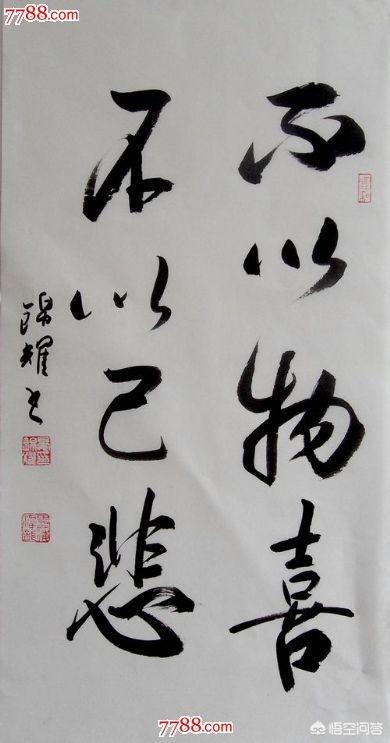 7788.com
7788.com
不以物喜
不以己悲
锦耀书
7788.com
悟空问答